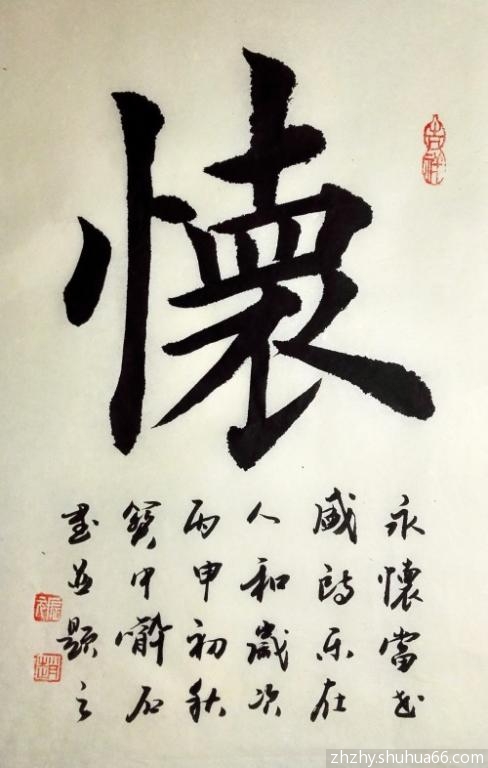 懷
吉祥
永懷當
盛乐在
人和歲次
丙申初秋
中石
並題之
zhzhy.shuhua66.com